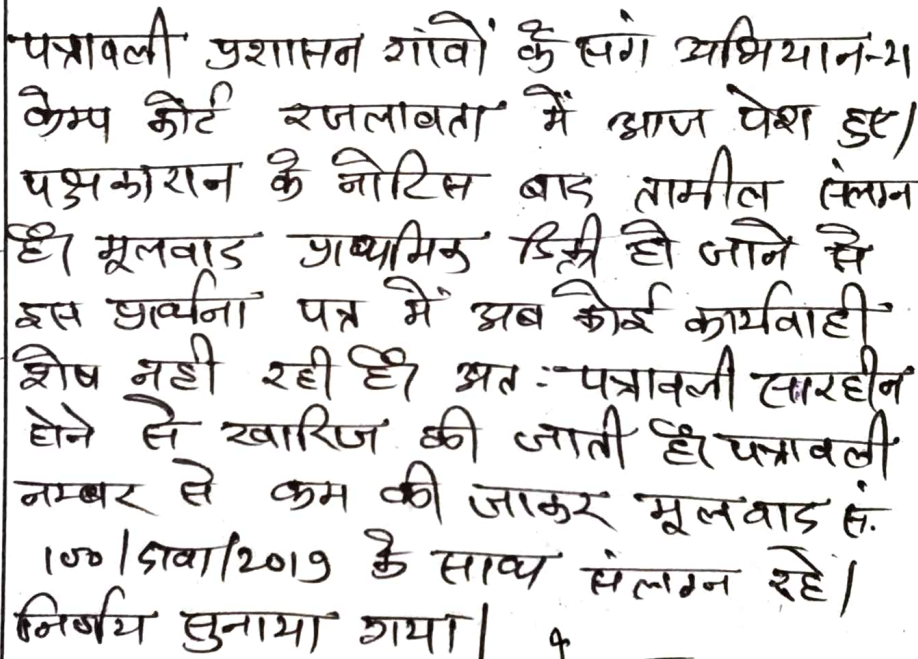 पत्रावली प्रशासन गांवों के संग अभियान-21
केम्प कोर्ट रजलावता में आज पेश हुए।
पक्षकारान के नोटिस बाद तामील संलग्न
है। मूलवाद प्राथमिक डिक्री हो जाने से
इस प्रार्थना पत्र में अब कोई कार्यवाही
शेष नही रही है। अतः पत्रावली सारहीन
होने से खारिज की जाती है। पत्रावली
नम्बर से कम की जाकर मूलवाद सं.
100/दावा/2019 के साथ संलग्न रहे।
निर्णय सुनाया गया।